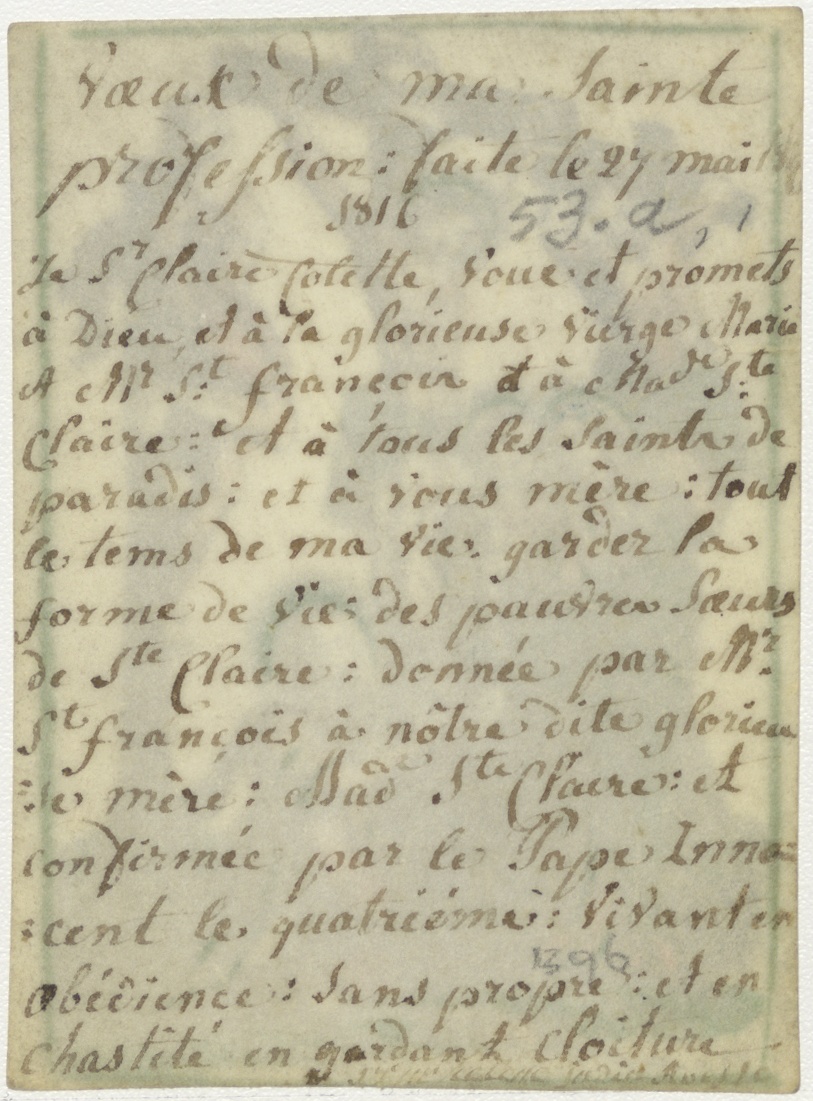 Vœux de ma Sainte
profession: faite le 27 mai
1816
53. a, 1
Je Sr Claire Colette, voue et promets
à Dieu, et à la glorieuse Vierge Marie
et Mr St françois et à Made Ste
Claire: et à tous les Saints de
paradis: et à vous mère: tout
le tems de ma vie: garder la
forme de vie: des pauvres Sœurs
de Ste Claire: donnée par Mr
St françois à nôtre dite glorieu
=se mère: Made Ste Claire: et
confirmée par le Pape Inno=
=cent le quatriéme: vivant en
obédience: sans propre: et en
chastité en gardant cloiture